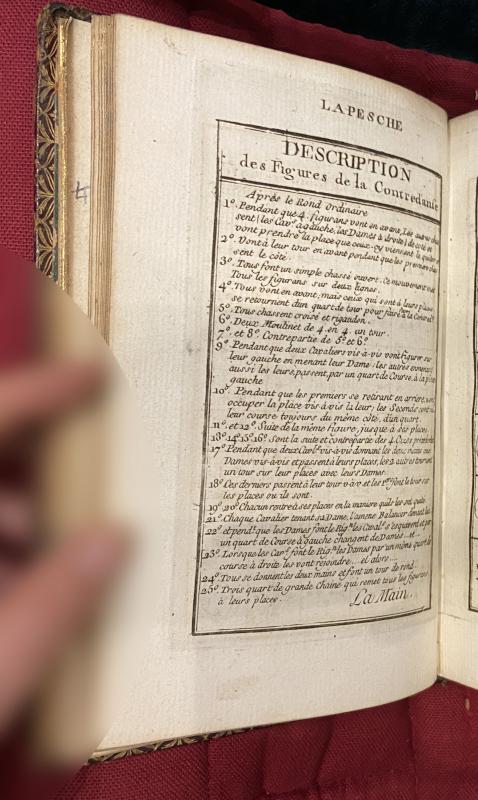 LA PESCHE
DESCRIPTION
des Figures de la Contredanse
Après le Rond Ordinaire
1º. Pendant que 4. figurans vont en avant, Les autres
sent (les Cavrs. à gauche, les Dames à droite) de coté et
vont prendre la place que ceux-cy viennent
2º. Vont à leur tour en avant pendant que les premiers
sent le côté.
3º. Tous font un simple chassé ouvert. Ce mouvement
Tous les figurans sur deux lignes.
4º. Tous vont en avant; mais ceux qui sont à leurs places
se retournent d'un quart de tour pour faire
5º. Tous chassent croisé et rigaudon.
6º. Deux Moulinet de 4. en 4. un tour.
7º. et 8º. Contrepartie de 5º. et 6º.
9º. Pendant que deux Cavaliers vis-à-vis vont figurer sur
leur gauche en menant leur Dame; les autres
aussi les leurs, passent, par un quart de Course, à la
gauche
10º. Pendant que les premiers se retirant en arriere, vont
occuper la place vis à vis la leur; les Seconds
leur course toujours du même côté, d'un quart.
11º. et 12º. Suite de la même figure, jusque à ses places.
13º. 14º. 15º. 16º. Sont la suite et contrepartie des 4.
17º. Pendant que deux Cavrs. vis-à-vis donnant les deux mains aux
Dames vis-à-vis et passent à leurs places, les 2. autres
un tour sur leur places avec leurs Dames.
18º. Ces derniers passent à leur tour v-à-v et les prs. font le tour sur
les places où ils sont.
19º. 20º. Chacun rentre à ses places en la maniere qu'ils les ont
21º. Chaque Cavalier tenant sa Dame, l'amene Balancer devant
22º. et pendt. que les Dames font le Rig. les Cavalrs. s'esquivent et par
un quart de Course à gauche changent de Dames... et...
23º. Lorsque les Cavrs. font le Rig. les Dames par un même quart de
course à droite les vont rejoindre... et alors...
24º. Tous se donnent les deux mains et font un tour de rond.
25º. Trois quart de grande Chaine qui remet tous les figurans
à leurs places.
La Main.